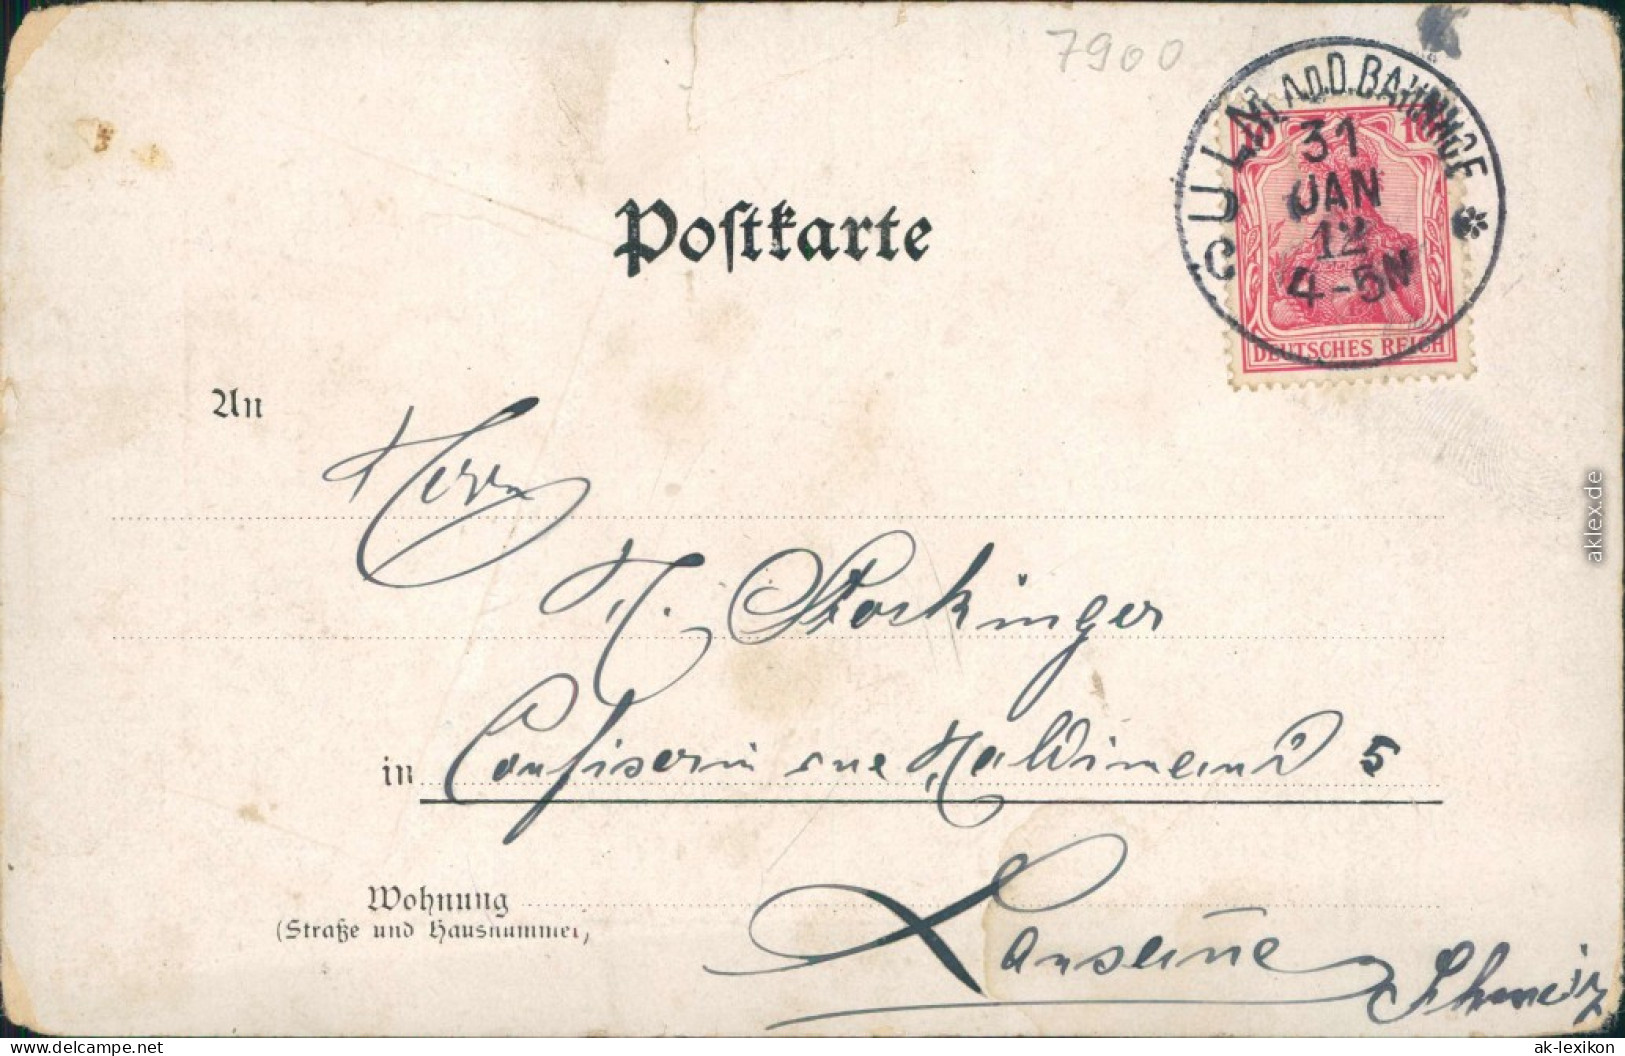 7900
ULM A.D.D. BAHNHOF
31
JAN
12
4-5N
10 10
DEUTSCHES REICH
Postkarte
An
Herrn
Stockinger
in Confiserin rue Haldimand 5
Wohnung
(Straße und Hausnummer)
Lausanne Schweiz
aklex.de
www.delcampe.net
ak-lexikon